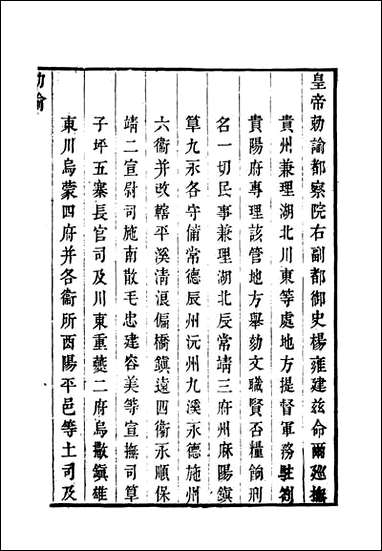 皇帝勅諭都察院右副都御史楊雍建兹命爾廵撫
貴州兼理湖北川東等處地方提督軍務駐劄
貴陽府專理該管地方舉劾文職賢否糧餉刑
名一切民事兼理湖北辰常靖三府州麻陽鎮
筸九永各守備常德辰州沅州九溪永德施州
六衞并改轄平溪清浪偏橋鎮遠四衞永順保
靖二宣尉司施南散毛忠建容美等宣撫司筸
子坪五寨長官司及川東重夔二府烏撒鎮雄
東川烏蒙四府并各衞所酉陽平邑等土司及
勅諭